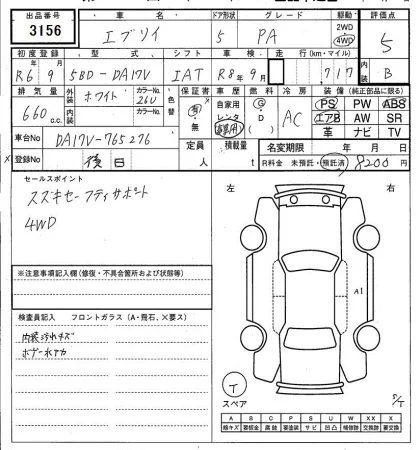 出品番号 車名 ドア形状 グレード 駆動 評価点
3156 エブリイ 5 PA 2WD 4WD 5
初度登録 型式 シフト 車検 走行 (km・マイル) 内装
R6 9 5BD-DA17V IAT R8年9月 717 B
排気量 外装 ホワイト カラーNo. 26U 色替 保証書 車歴 燃料 冷房 装備 (純正部品に限る)
660 c.c. 内装 カラーNo. 有・無 自家用 レンタ G D AC PS PW ABS
エアB AW SR
革 ナビ TV
車台No DA17V-765276 定員 人 積載量 t 名変期限 年 月 日
登録No 後日 R料金 未預託・預託済 8200円
セールスポイント
スズキセーフティサポート
4WD
左 右
※注意事項記入欄 (修復・不具合箇所および状態等)
検査員記入 フロントガラス (A・飛石、×要ス)
内装汚れキズ
ボデー水アカ
A1
T
スペア
S/T
A B C P S U W X XX
線キズ 要板金 腐蝕 要塗装 サビ 凹凸 補修跡 要交換 交換跡